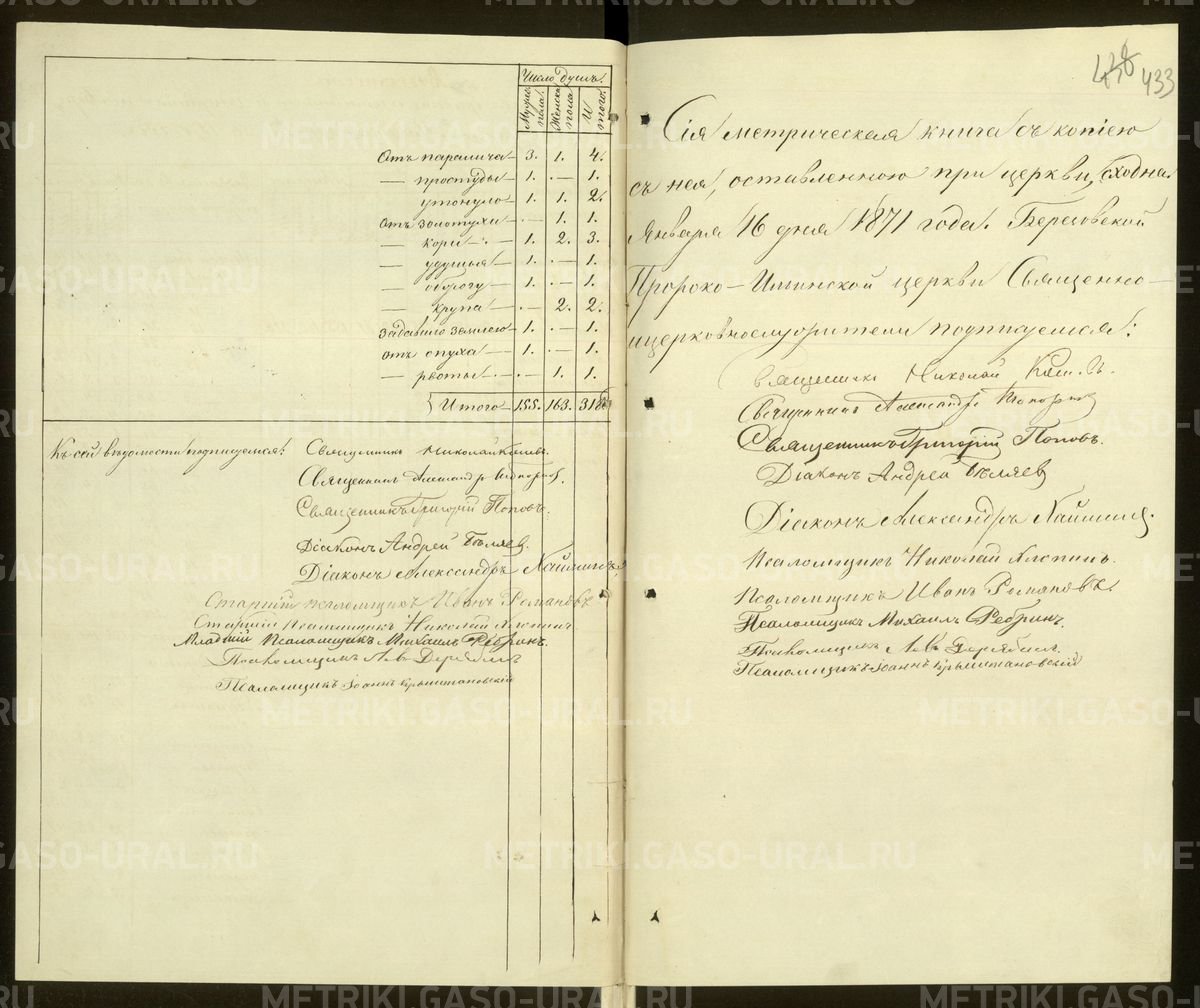 Число душъ.
Мужс. пола.
Женска пола
И того.
Отъ паралича — 3. 1. 4.
— простуды — 1. — 1.
утонуло — 1. 1. 2.
Отъ золотухи — — 1. 1.
— кори — 1. 2. 3.
— удушья — 1. — 1.
— 1. — 1.
— крупа — — 2. 2.
задавило землею — 1. — 1.
отъ опуха — 1. — 1.
— рвоты — — 1. 1.
Итого 155. 163. 318.
Къ сей вѣдомости подписуемся: Священникъ Николай
Священникъ Александръ Топорковъ.
Священникъ Григорій Поповъ.
Діаконъ Андрей Бѣляев.
Діаконъ Александръ
Старшій псаломщикъ Иванъ Романовъ
Старшій Псаломщикъ Николай
Младшій Псаломщикъ Михаилъ Ребринъ.
Псаломщикъ Левъ Дерябинъ
Псаломщикъ Іоаннъ Крыштановскій
433
Сія метрическая книга съ копіею
съ нея, оставленною при церкви, сходна
Января 16 дня 1871 года. Березовской
Пророко-Ильинской церкви Священно-
ицерковнослужители подписуемся:
Священникъ Николай
Священникъ Александръ Топорковъ
Священникъ Григорій Поповъ.
Діаконъ Андрей Бѣляев
Діаконъ Александръ
Псаломщикъ Николай
Псаломщикъ Иванъ Романовъ.
Псаломщикъ Михаилъ Ребринъ.
Псаломщикъ Левъ Дерябинъ.
Псаломщикъ Іоаннъ Крыштановскій
METRIKI.GASO-URAL.RU